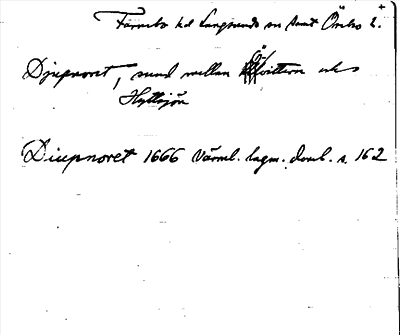 Färnebo hd Långbans sn samt Örebro l.
Djupnoret, sund mellan Övittern och
Hyttsjön
Diupnoret 1666 Värml. lagm. domb. s. 162